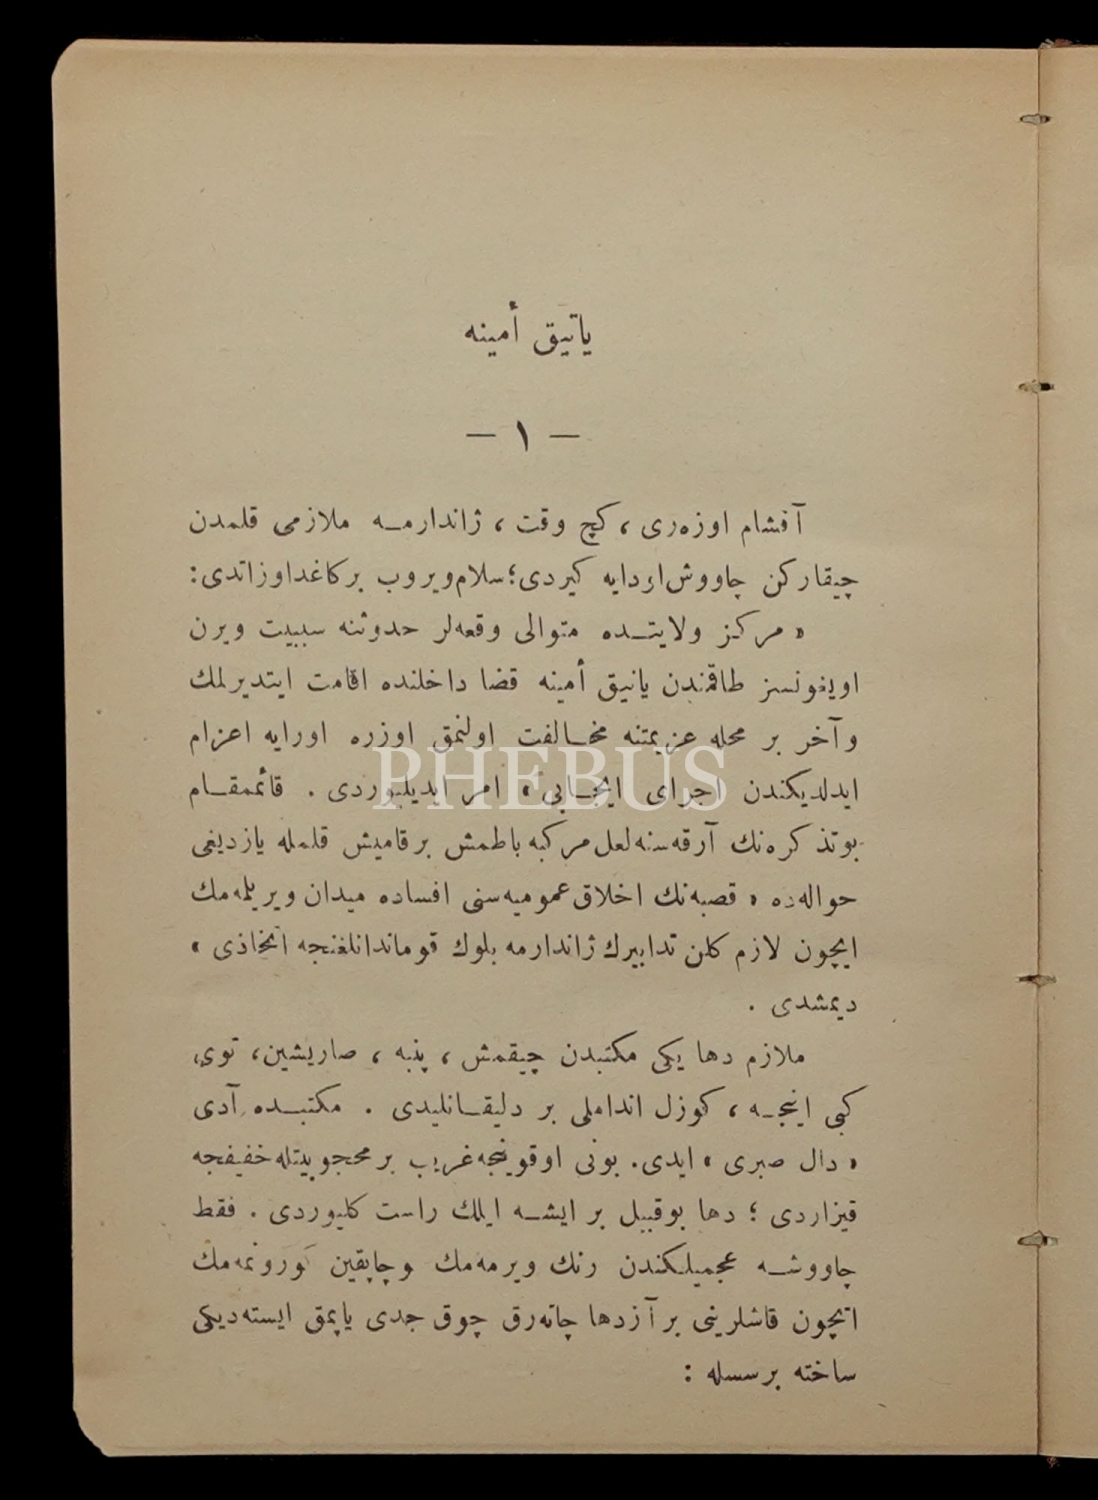 ياتيق أمينه
— ١ —
آقشام اوزەرى ، كچ وقت ، ژاندارمــه ملازمى قلمدن
چيقاركن چاووش اودايه كيردى؛ سلام ويروب بر كاغد اوزاتدى :
« مركز ولايتــده متوالى وقعه‌لر حدوثنه سببيت ويرن
اويغونسز طاقمندن يانيق أمينه قضا داخلنده اقامت ايتديرلمك
و آخر بر محله عزيمتنه مخـالفت اولنمق اوزره اورايه اعزام
ايدلديكندن اجراى ايجـابى » امر ايديليوردى . قائممقـام
بو تذكره‌نك آرقه‌سنه لعل مركبه باطمش بر قاميش قلمله يازديغى
حواله‌ده « قصبه‌نك اخلاق عموميه‌سنى افساده ميدان ويريلمه‌مك
ايچون لازم كلن تدابيرك ژاندارمه بلوك قوماندانلغنجه اتخاذى »
ديمشدى .
ملازم دها يكى مكتبدن چيقمش ، پنبه ، صاريشين ، توى
كبى اينجـه ، كوزل انداملى بر دليقـانليدى . مكتبــده آدى
« دال صبرى » ايدى . بونى اوقوينجه غريب بر محجوبيتله خفيفجه
قيزاردى ؛ دها بو قبيل بر ايشــه ايلك راست كليوردى . فقط
چاووشــه عجميلكندن رنك ويرمه‌مك و چاپقين كورونمه‌مك
ايچون قاشلرينى بر آز دها چاته‌رق چوق جدى ياپمق ايسته‌ديكى
ساخته بر سسله :
PHEBUS